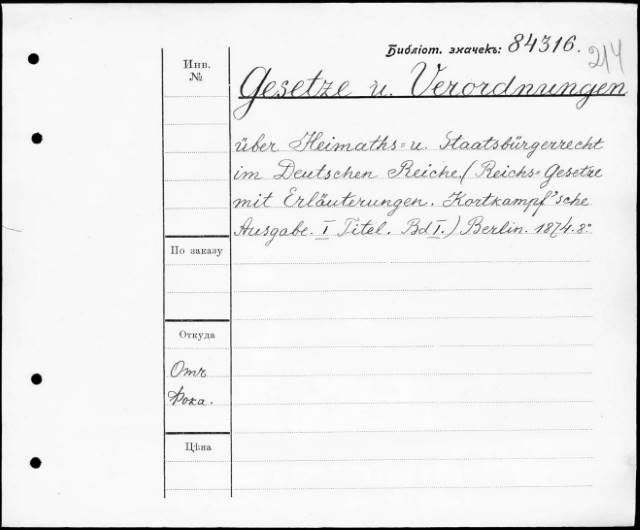 Библіот. значекъ: 84316.
214
Инв.
№
Gesetze u. Verordnungen
über Heimaths= u. Staatsbürgerrecht
im Deutschen Reiche. (Reichs=Gesetze
mit Erläuterungen. Kortkampf'sche
Ausgabe. I Titel. Bd I.) Berlin. 1874. 8º
По заказу
Откуда
Отъ
Фока.
Цѣна